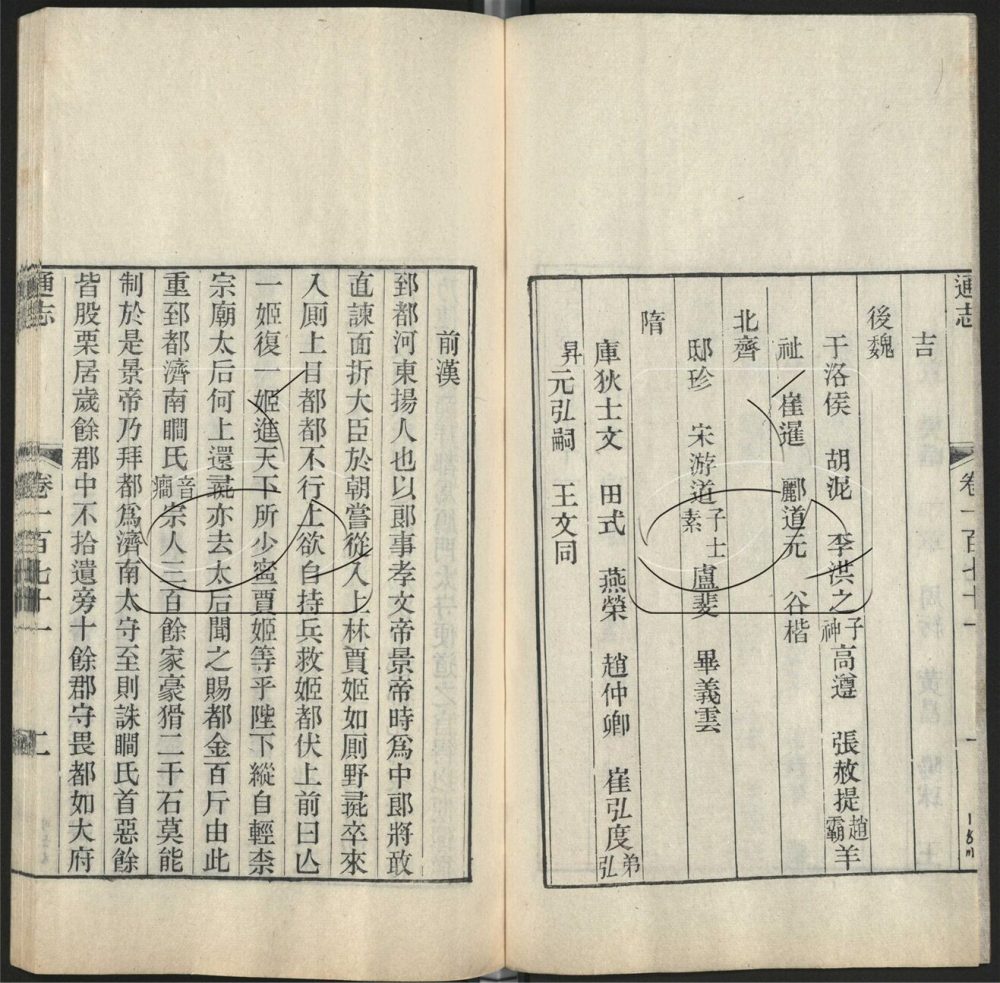 通志
卷一百七十一
一
吉
後魏
于洛侯 胡泥 李洪之子神 高遵 張赦提趙霸 羊
祉 崔暹 酈道元 谷楷
北齊
邸珍 宋游道子士素 盧斐 畢義雲
隋
庫狄士文 田式 燕榮 趙仲卿 崔弘度弟弘
昇 元弘嗣 王文同
前漢
郅都河東揚人也以郎事孝文帝景帝時爲中郎將敢
直諫面折大臣於朝嘗從入上林賈姬如厠野彘卒來
入厠上目都都不行上欲自持兵救姬都伏上前曰亾
一姬復一姬進天下所少寜賈姬等乎陛下縱自輕柰
宗廟太后何上還彘亦去太后聞之賜都金百斤由此
重郅都濟南瞷氏音癎宗人三百餘家豪猾二千石莫能
制於是景帝乃拜都爲濟南太守至則誅瞷氏首惡餘
皆股栗居歲餘郡中不拾遺旁十餘郡守畏都如大府
通志
卷一百七十一
二